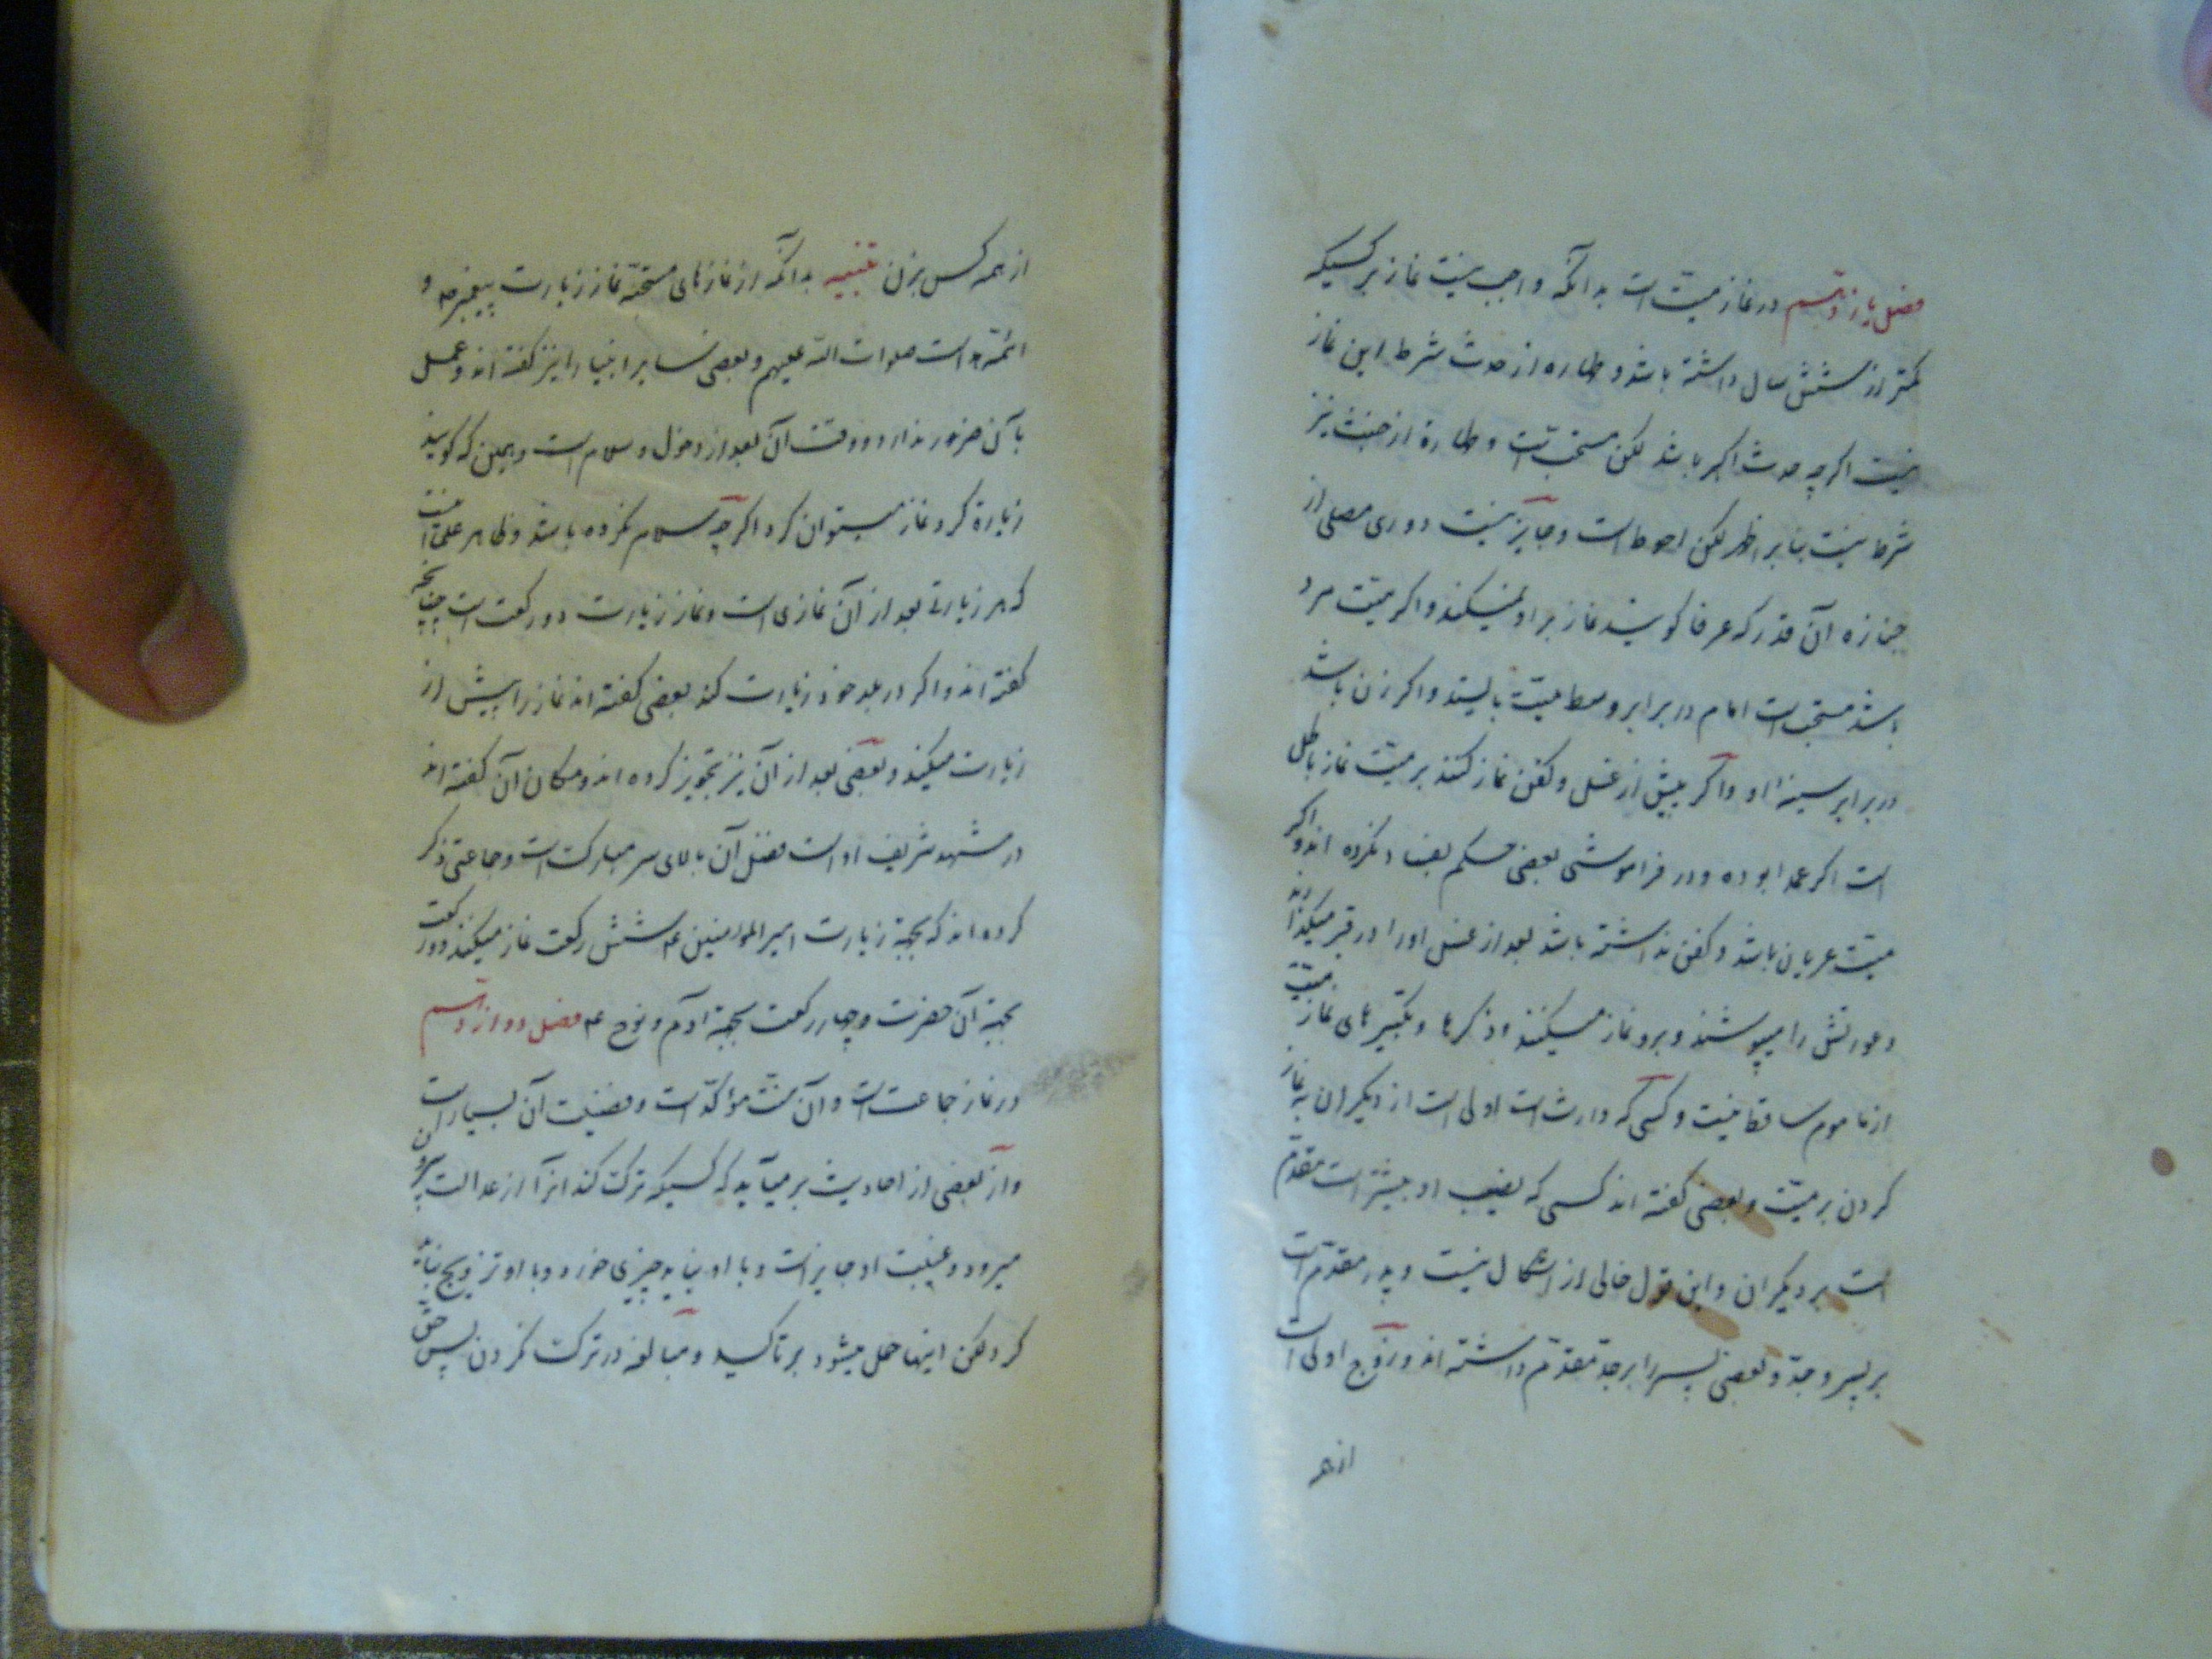 فصل یازدهم در نماز میت است بدانکه واجب نیست نماز بر کسیکه
کمتر از شش سال داشته باشد و طهاره از حدث شرط این نماز
نیست اگرچه حدث اکبر باشد لکن مستحب است و طهارة از خبث نیز
شرط نیست بنابر اظهر لکن احوط است و جایز نیست دوری مصلی از
جنازه آن قدر که عرفا کویند نماز بر او نمیکند و اکر میت مرد
باشد مستحب است امام در برابر وسط میت بایستد و اکر زن باشد
در برابر سینه او و اکر پیش از غسل و کفن نماز کنند بر میت نماز باطل
است اکر عمدا بوده و در فراموشی بعضی حکم بفساد نکرده اند و اکر
میت عریان باشد و کفن نداشته باشد بعد از غسل او را در قبر میکذارند
و عورتش را میپوشند و برو نماز میکنند و ذکرها و تکبیرهای نماز میت
از ماموم ساقط نیست و کسی که وارث است اولی است از دیکران به نماز
کردن بر میت و بعضی کفته اند کسی که نصیب او بیشتر است مقدم
است بر دیکران و این قول خالی از اشکال نیست و پدر مقدم است
بر پسر و جد و بعضی پسر را بر جد مقدم داشته اند و زوج اولی است
از هر
از همه کس بزن تنبیه بدانکه از نمازهای مستحبه نماز زیارت پیغمبر ص و
ائمه هداست صلوات الله علیهم و بعضی سایر انبیا را نیز کفته اند و عمل
بآن ضرور ندارد و وقت آن بعد از دخول و سلام است و همین که کویند
زیارة کرد نماز میتوان کرد اکرچه سلام نکرده باشد و ظاهر علی است
که هر زیارتی بعد از آن نمازی است و نماز زیارت دو رکعت است چنانچه
کفته اند و اکر در بلد خود زیارت کند بعضی کفته اند نماز را پیش از
زیارت میکند و بعضی بعد از آن نیز تجویز کرده اند و مکان آن کفته اند
در مشهد شریف او است افضل آن بالای سر مبارکست و جماعتی ذکر
کرده اند که بجهة زیارت امیر المؤمنین ع شش رکعت نماز میکند دو رکعت
بجهة آن حضرت و چهار رکعت بجهة آدم و نوح ع فصل دوازدهم
در نماز جماعت است و آن سنت مؤکد است و فضیلت آن بسیار است
و از بعضی از احادیث بر میآید که کسیکه ترک کند آنرا از عدالت بیرون
میرود و غیبت او جایز است و با او نباید چیزی خورد و با او تزویج نباید
کرد لکن اینها حمل میشود بر تاکید و مبالغه در ترک نکردن پس حق